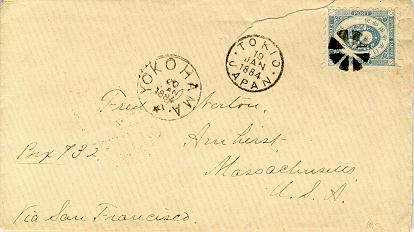 TOKYO
19
JAN
1884
JAPAN
YOKOHAMA
20
JAN
1884
Fred Norton,
Box 732
Amherst
Massachusetts
U. S. A.
Via San Francisco.